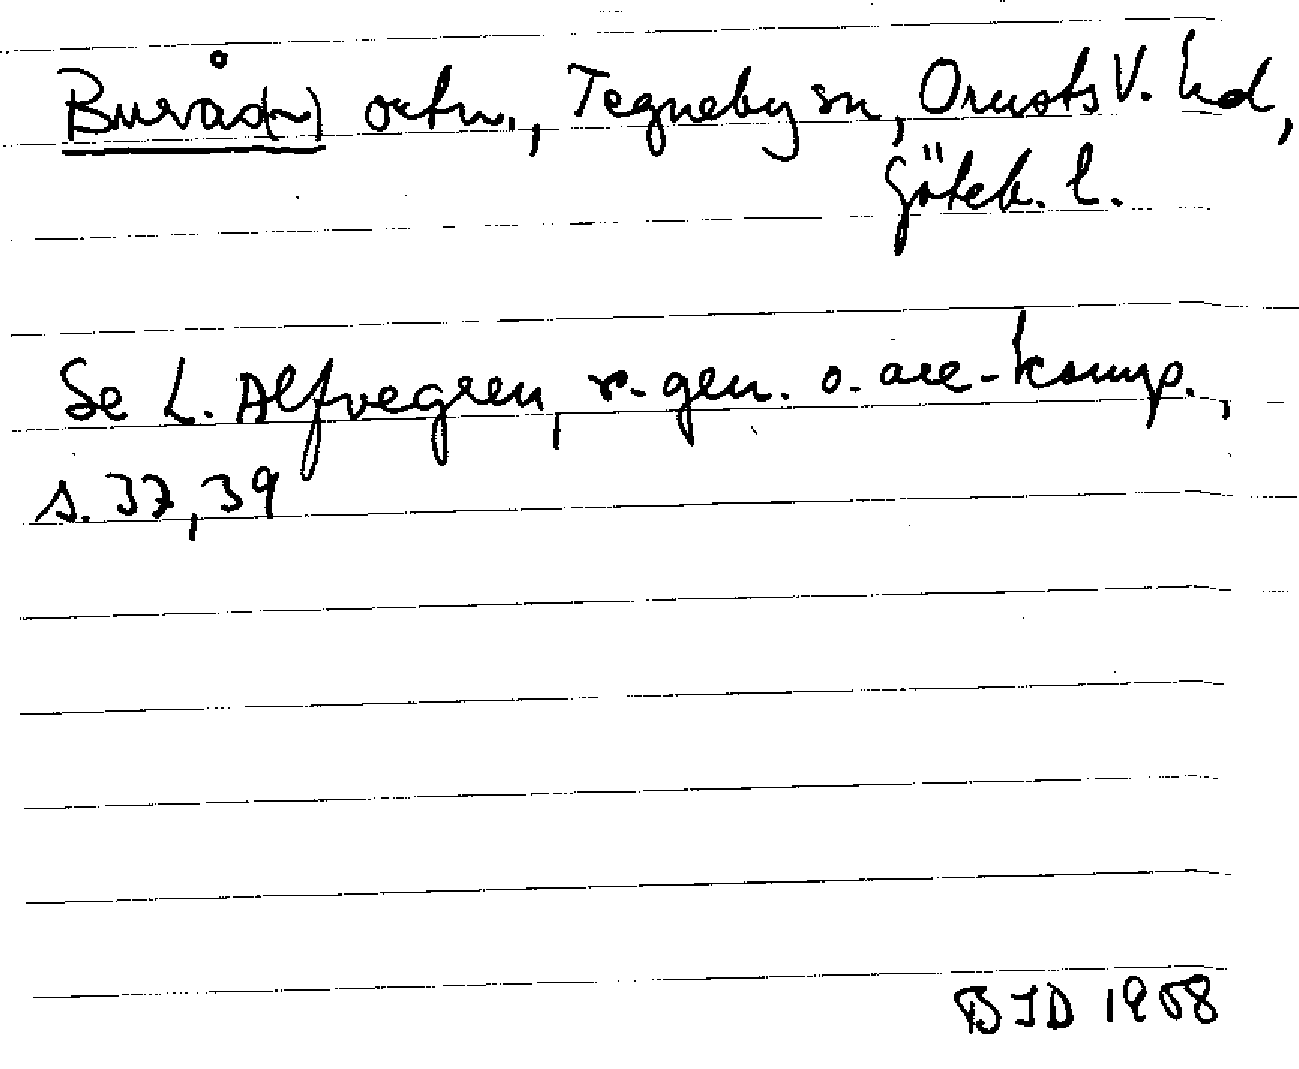 Buråsen) ortn., Tegneby sn, Orusts V. hd,
Göteb. l.
Se L. Alfvegren, r-gen. o. are-komp.,
s. 37, 39
BJD 1958